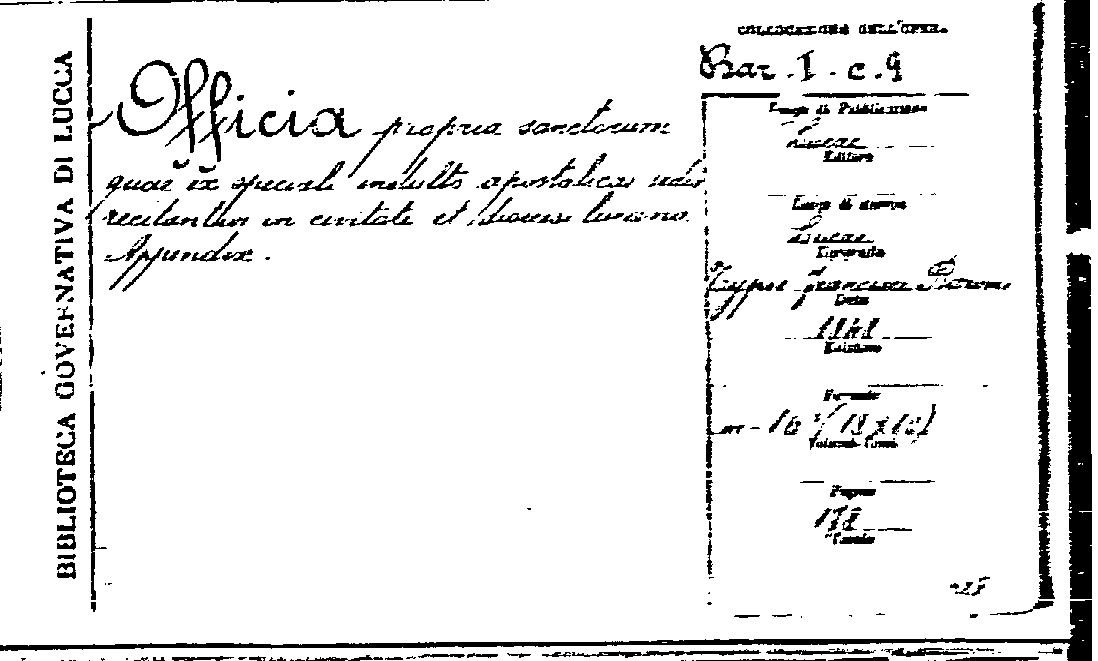 BIBLIOTECA GOVERNATIVA DI LUCCA
Officia propria sanctorum
quae ex speciali indulto apostolicae sedis
recitantur in civitate et diocesi lucana.
Appendix.
COLLOCAZIONE DELL'OPERA.
Bar. I. c. 9
Luogo di Pubblicazione
Lucae
Editore
Luogo di stampa
Lucae
Stampatore
Typis Francisci Baroni
Data
Edizione
Formato
in-16° (18x12)
Volumi
Pagine
Tavole